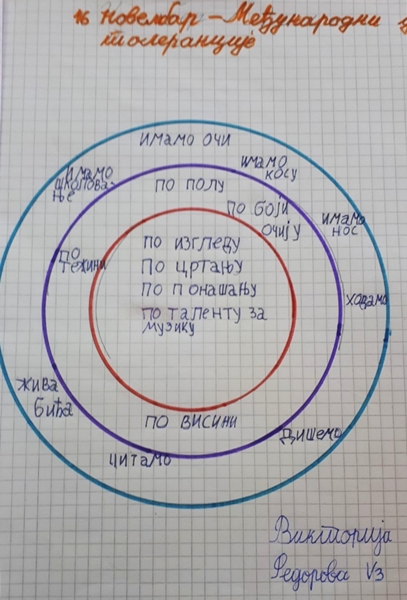 16 Новембар – Међународни
толеранције
имамо очи
имамо
косу
имамо
школова-
ње
по полу
по боји
очију
имамо
нос
по
тежини
по изгледу
по цртању
по понашању
по таленту за
музику
ходамо
жива
бића
по висини
дишемо
цитамо
Викторија
Федорова V3